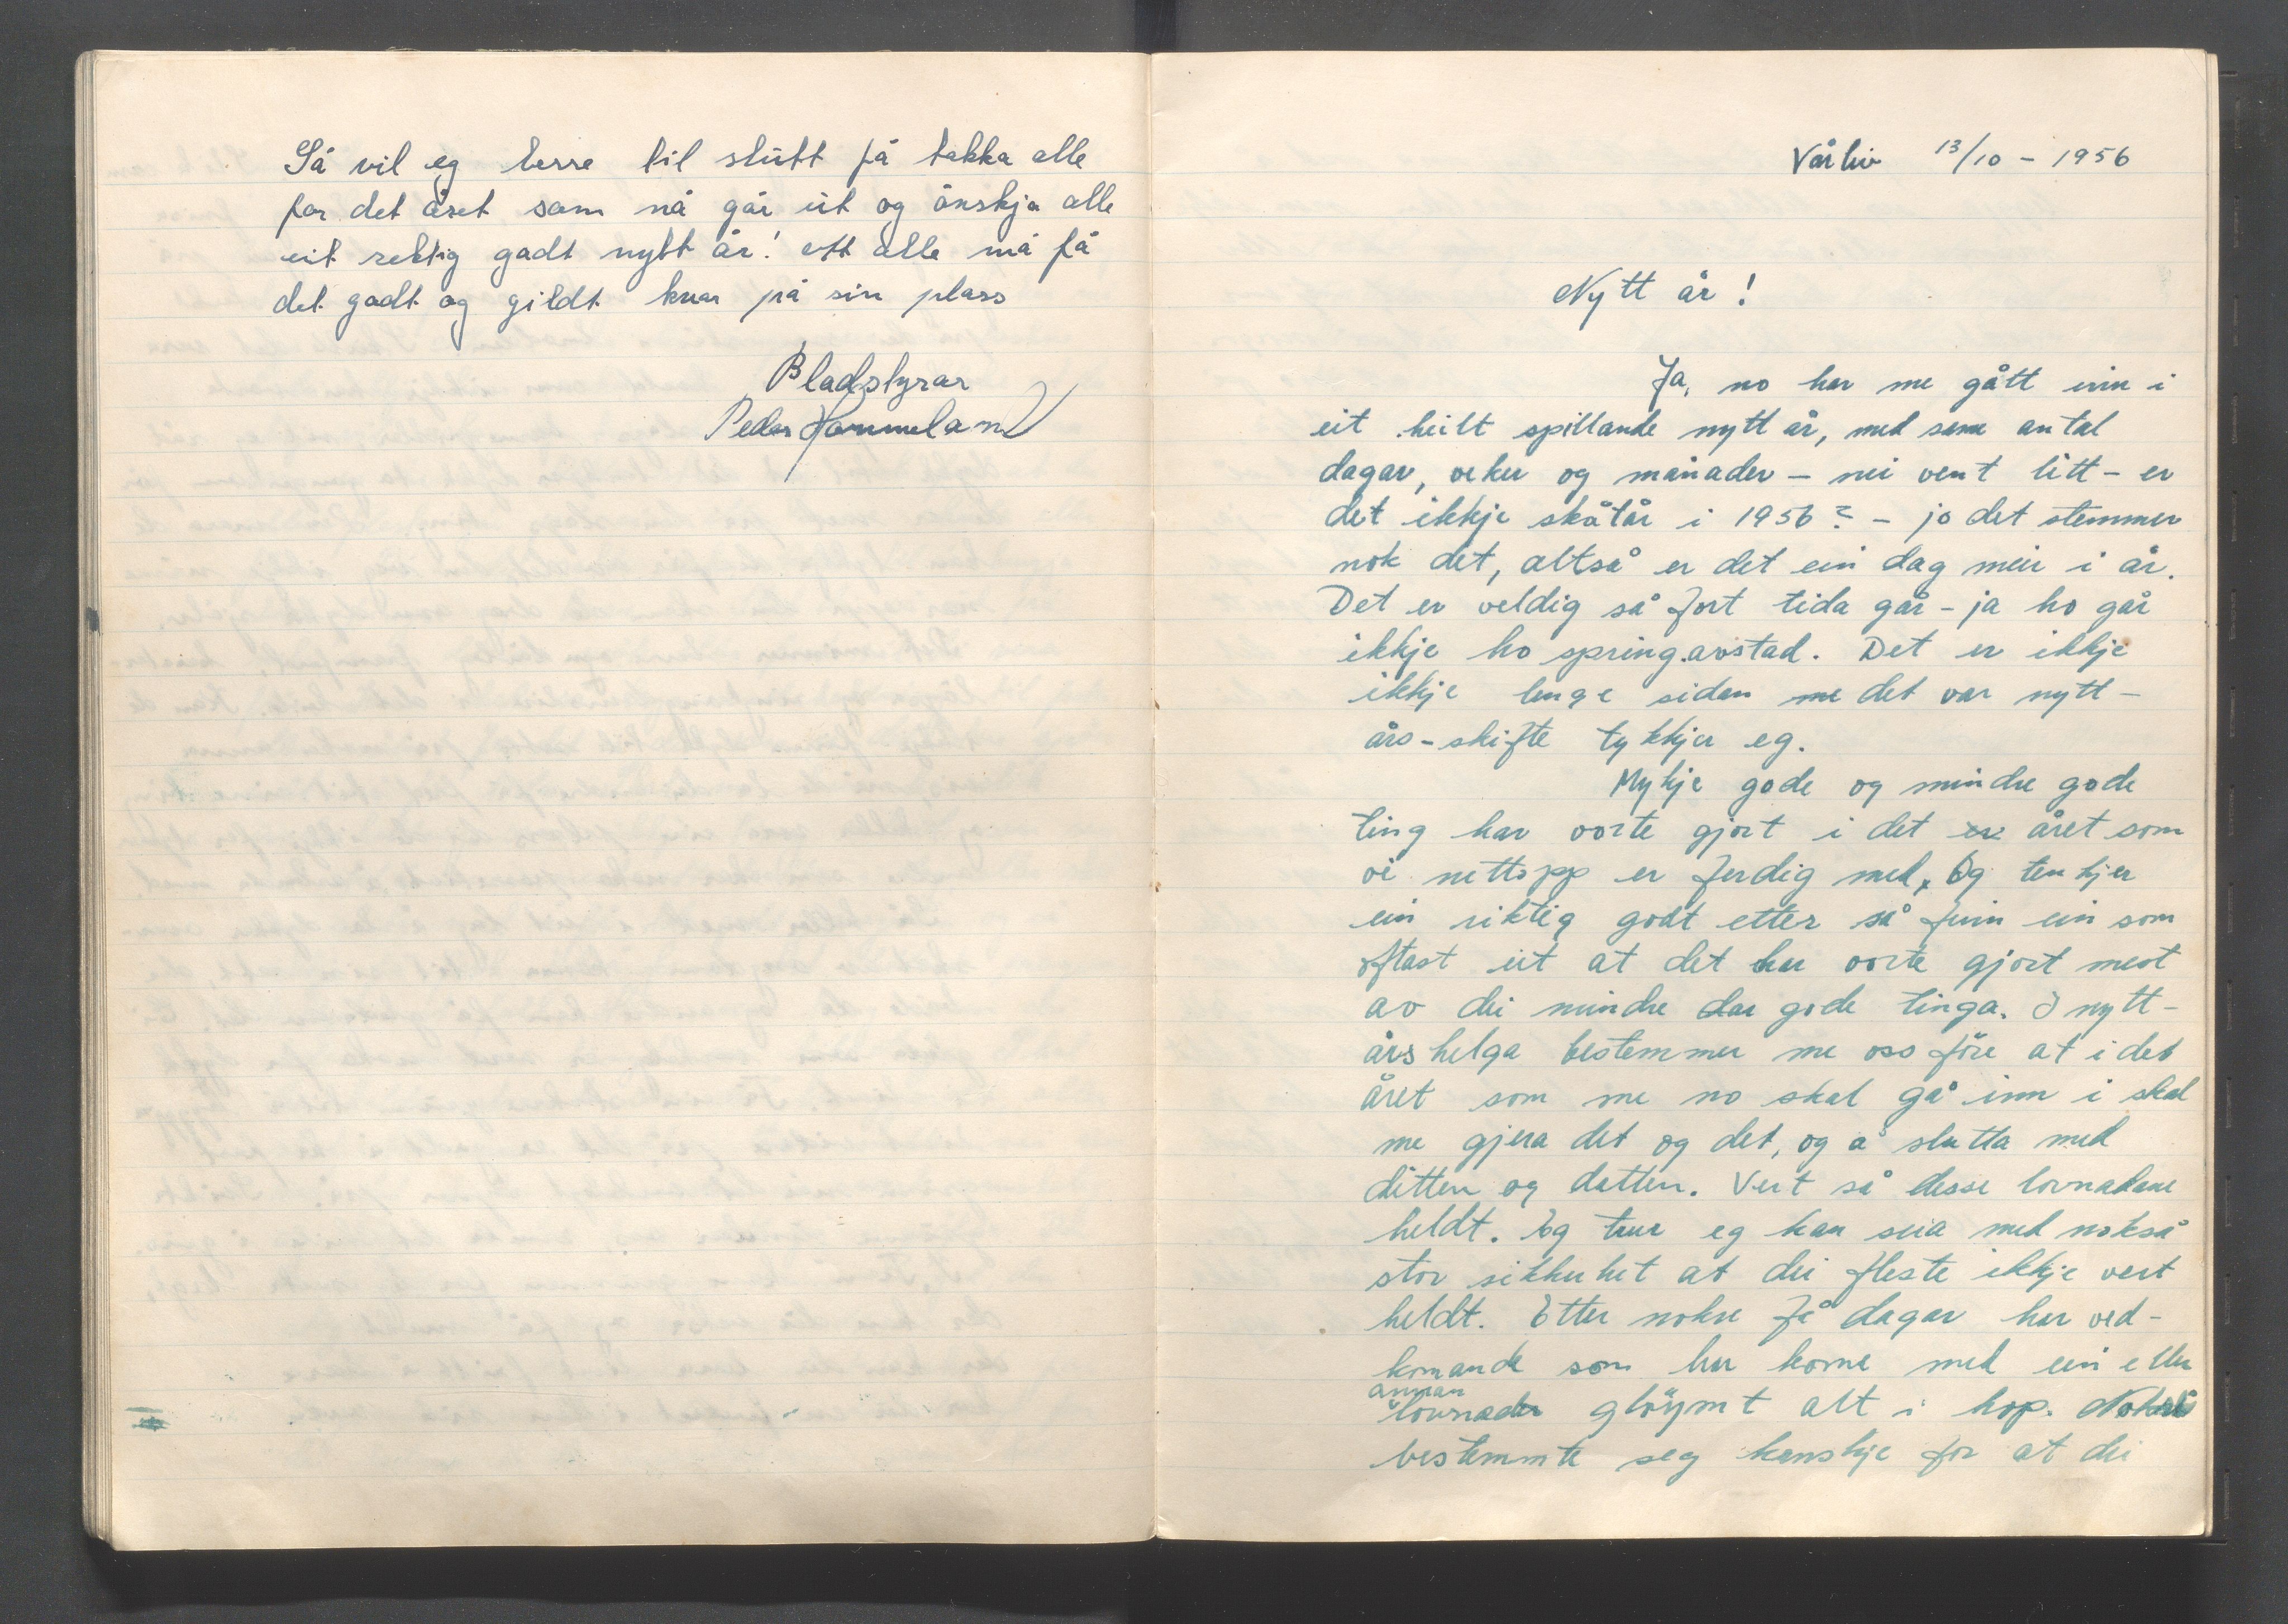 Så vil eg berre til slutt få takka alle
for det året som nå går ut og ønskja alle
eit rektig godt nytt år! att alle må få
det godt og gildt kvar på sin plass
Bladstyrar
Peder Hommeland
Vårliv 13/10 - 1956
Nytt år!
Ja, no har me gått inn i
eit heilt spillande nytt år, med same antal
dagar, veker og månader - nei vent litt - er
det ikkje skåtår i 1956? - jo det stemmer
nok det, altså er det ein dag meir i år.
Det er veldig så fort tida går - ja ho går
ikkje ho spring.avstad. Det er ikkje
ikkje lenge sidan me det var nytt-
års-skifte tykkjer eg.
Mykje gode og mindre gode
ting har vorte gjort i det er året som
vi nettopp er ferdig med, Og tenkjer
ein riktig godt etter så finn ein som
oftast ut at det har vorte gjort mest
av dei mindre dar gode tinga. I nytt-
års helga bestemmer me oss före at i det
året som me no skal gå inn i skal
me gjera det og det, og å slutta med
ditten og datten. Vert så desse lovnadane
heldt. Eg trur eg kan seia med nokså
stor sikkerhet at dei fleste ikkje vert
heldt. Etter nokre få dagar har ved-
komande som har kome med ein eller
annan
lovnader glöymt alt i hop. Nokre
bestemmte seg kanskje for at dei